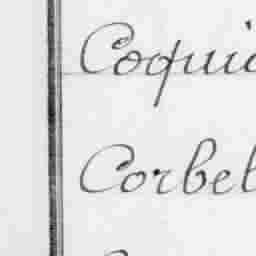 Coqui
Corbel